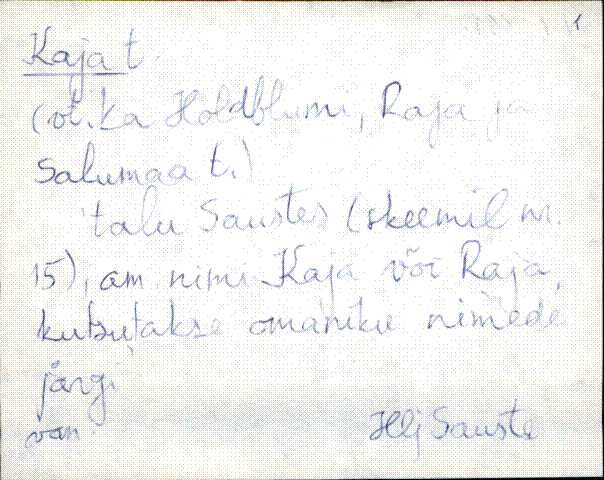 1
Kaja t.
(vt. ka Holdblumi, Raja ja
Salumaa t.)
talu Saustes (skeemil nr.
15), am. nimi Kaja või Raja,
kutsutakse omanike nimede
järgi
van. Hlj Sauste